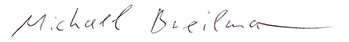 Michael Breilmann